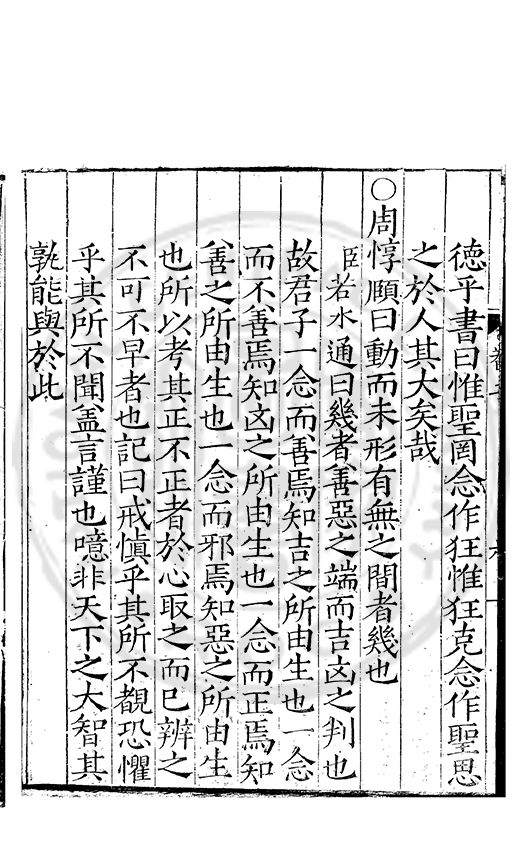 德乎書曰惟聖罔念作狂惟狂克念作聖思
之於人其大矣哉
○周惇頤曰動而未形有無之間者幾也
臣若水通曰幾者善惡之端而吉凶之判也
故君子一念而善焉知吉之所由生也一念
而不善焉知凶之所由生也一念而正焉知
善之所由生也一念而邪焉知惡之所由生
也所以考其正不正者於心取之而已辨之
不可不早者也記曰戒慎乎其所不覩恐懼
乎其所不聞蓋言謹也噫非天下之大智其
孰能與於此